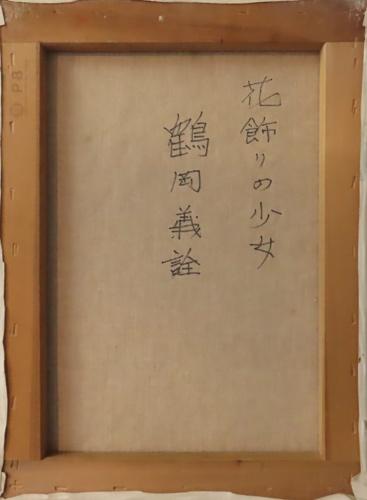 花飾りの少女
鶴岡義詮
P8